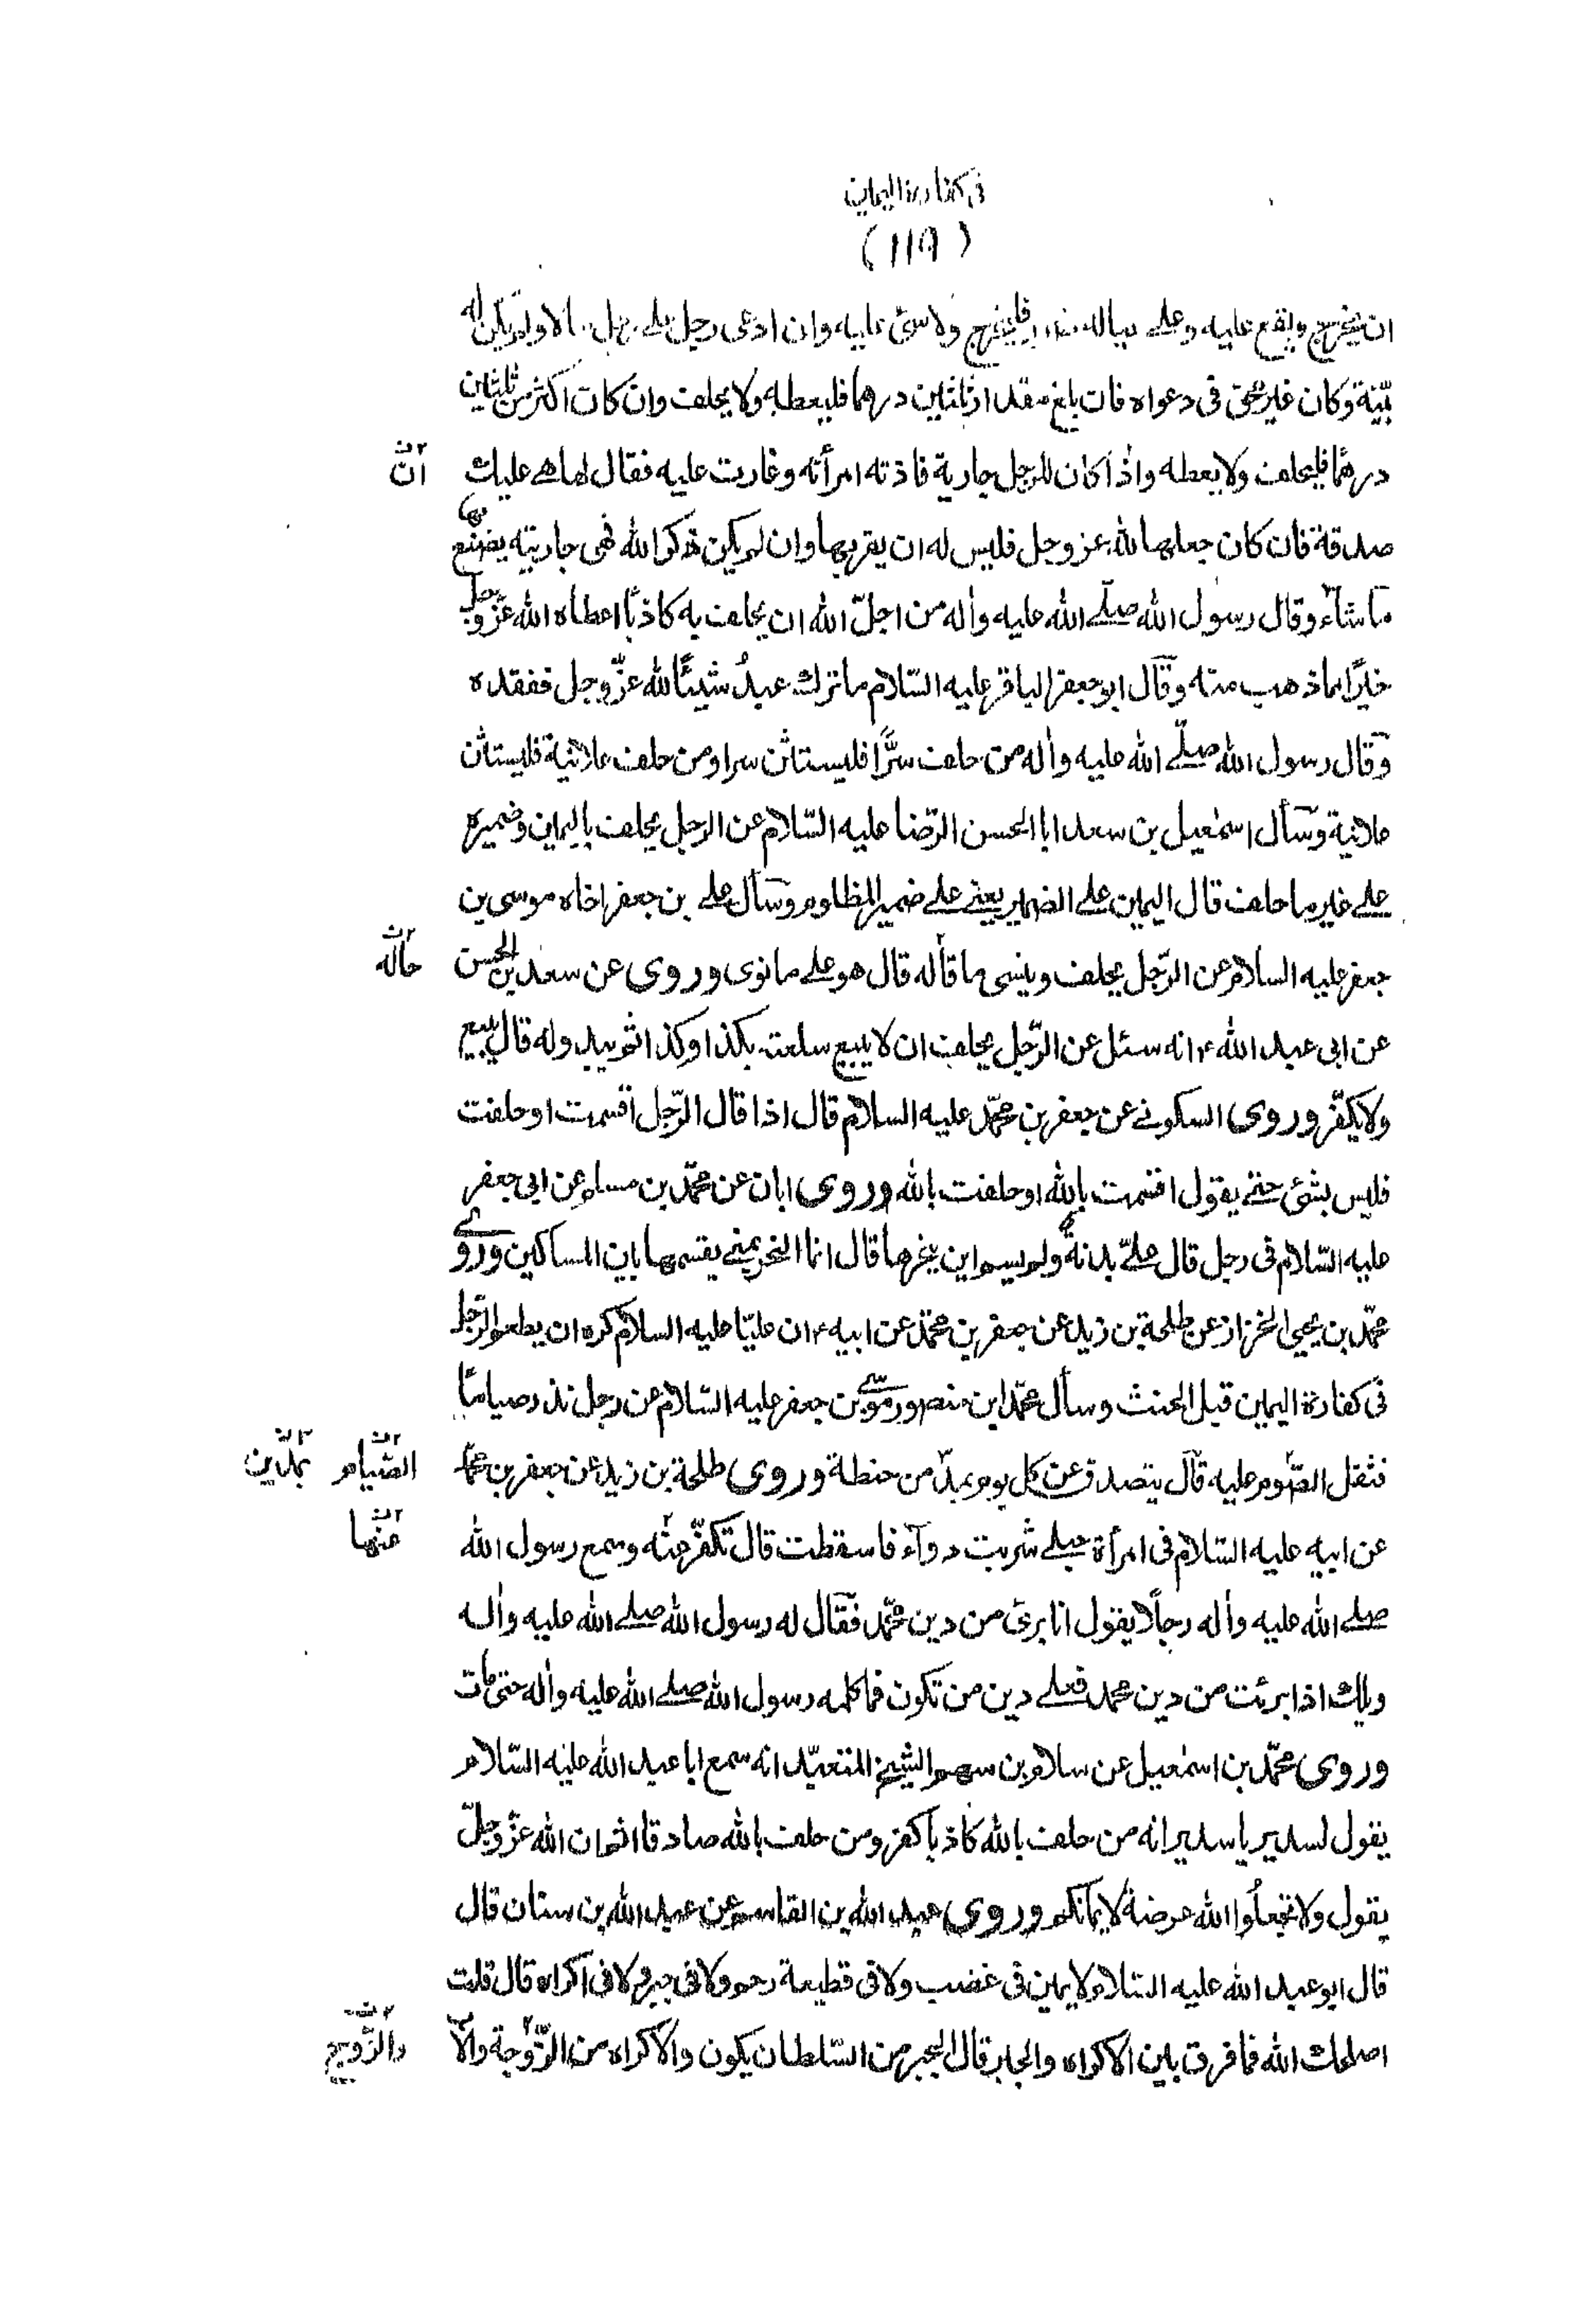 في كفارة اليمان
(١١٩)
ان يخرج ويقع عليه وعلى عياله فليخرج ولا شئ عليه وان ادعى رجل على مالا ولم يكن له
بيّنة وكان غير محق في دعواه فان بلغ مقدار ثلثين درهما فليعطه ولا يحلف وان كان اكثر من ثلثين
درهمًا فليحلف ولا يعطه واذا كان للرجل جارية فاذته امرأته وغارت عليه فقال لها هي عليك
ان
صدقة فان كان جعلها لله عز وجل فليس له ان يقربها وان لم يكن ذكر الله فهي جاريته يصنع بها
ما شاء وقال رسول الله صلّى الله عليه واله من اجلّ الله ان يحلف به كاذبًا اعطاه الله عزّ وجل
خيرًا مما ذهب منه وقال ابو جعفر الباقر عليه السّلام ما ترك عبدٌ شيئًا لله عزّ وجل ففقده
وقال رسول الله صلّى الله عليه واله من حلف سرًّا فليستثن سرا ومن حلف علانية فليستثن
علانية وسأل اسمعيل بن سعد ابا الحسن الرّضا عليه السّلام عن الرجل يحلف باليمين وضميره
على غير ما حلف قال اليمين على الضمير يعني على ضمير المظلوم وسأل على بن جعفر اخاه موسى بن
جعفر عليه السلام عن الرّجل يحلف وينسى ما قاله قال هو على ما نوى وروى عن سعد بن الحسن
حاله
عن ابي عبد الله ع انه سئل عن الرّجل يحلف ان لا يبيع سلعته بكذا وكذا ثم يبدو له قال يبيع
ولا يكفّر وروى السكوني عن جعفر بن محمّد عليه السلام قال اذا قال الرّجل اقسمت او حلفت
فليس بشئ حتى يقول اقسمت بالله او حلفت بالله وروى ابان عن محمّد بن مسلم عن ابي جعفر
عليه السّلام في رجل قال عليّ بدنة ولم يسم اين ينحرها قال انما النحر بمنى يقسمها بين المساكين وروى
محمّد بن يحيى الخزاز عن طلحة بن زيد عن جعفر بن محمّد عن ابيه ع ان عليّا عليه السلام كره ان يطعم الرّجل
في كفارة اليمين قبل الحنث وسأل محمّد ابن منصور موسى بن جعفر عليه السّلام عن رجل نذر صيامًا
فثقل الصّوم عليه قال يتصدق عن كل يوم بمدّ من حنطة وروى طلحة بن زيد عن جعفر بن محمّد
الصّيام
بمدّين
عن ابيه عليه السّلام في امرأة حبلى شربت دواء فاسقطت قال تكفّر عنه وسمع رسول الله
عنها
صلى الله عليه واله رجلًا يقول انا برئ من دين محمّد فقال له رسول الله صلى الله عليه واله
ويلك اذا برئت من دين محمد فعلى دين من تكون فما كلمه رسول الله صلى الله عليه واله حتى مات
وروى محمّد بن اسمعيل عن سلام بن سهم الشيخ المتعبّد انه سمع ابا عبد الله عليه السّلام
يقول لسدير يا سدير انه من حلف بالله كاذبا كفر ومن حلف بالله صادقا اثم ان الله عزّ وجلّ
يقول ولا تجعلوا الله عرضة لايمانكم وروى عبد الله بن القاسم عن عبد الله بن سنان قال
قال ابو عبد الله عليه السّلام لا يمين في غضب ولا في قطيعة رحم ولا في جبر ولا في اكراه قال قلت
اصلحك الله فما فرق بين الاكراه والجبر قال الجبر من السّلطان يكون والاكراه من الزّوجة والا
والزّويج